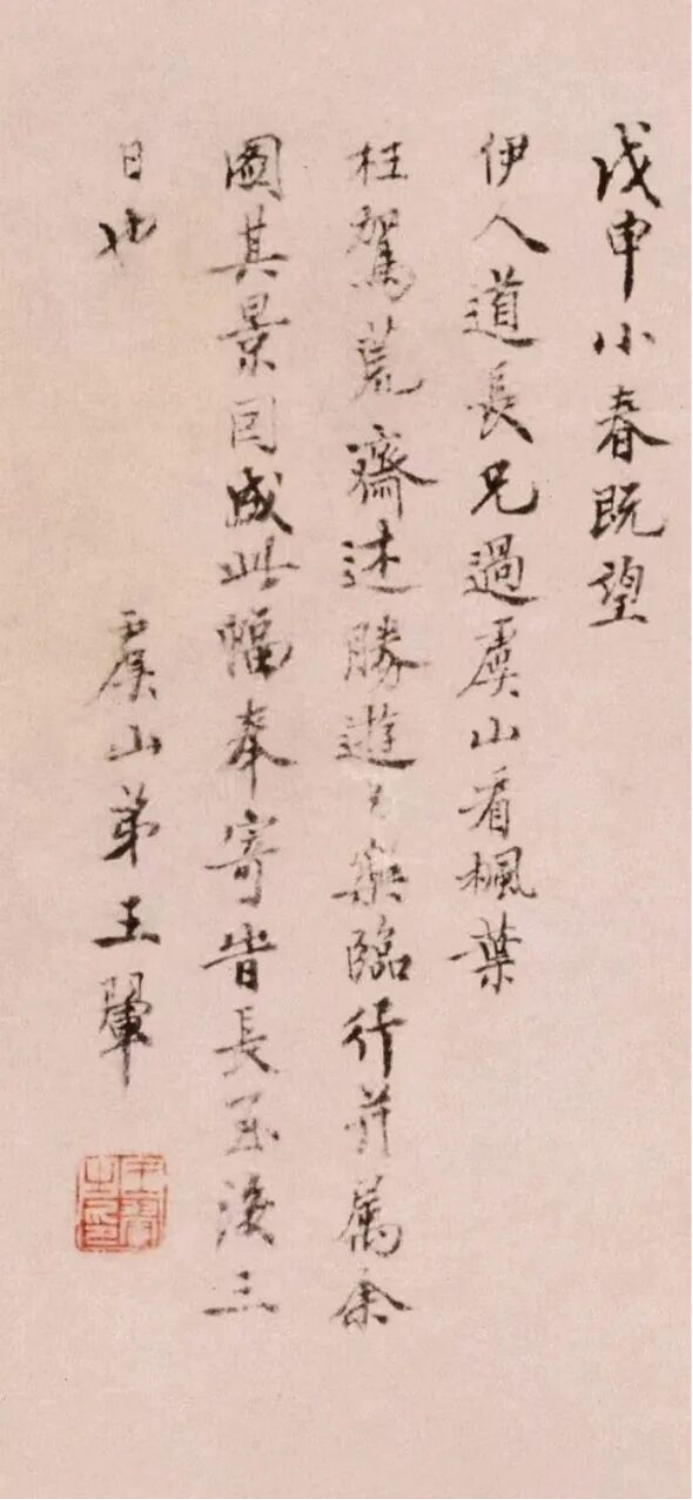 戊申小春既望
伊人道長兄過虞山看楓葉
枉駕荒齋述勝遊之樂臨行并屬余
圖其景因成此幅奉寄旹長至後三
日也 虞山弟王翬